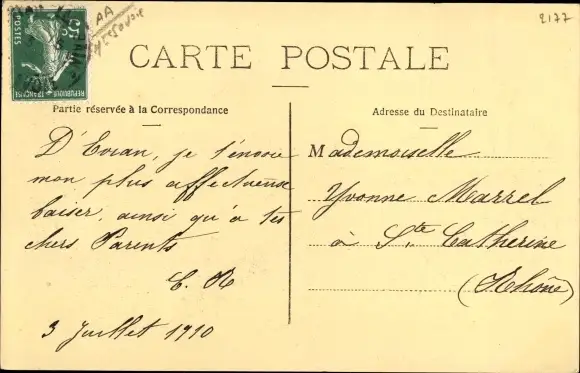 2177
AA
Hte Savoie
POSTES
5c
REPUBLIQUE FRANÇAISE
CARTE POSTALE
Partie réservée à la Correspondance
Adresse du Destinataire
D'Evian, je t'envoie
mon plus affectueux
baiser, ainsi qu'à tes
chers Parents
C. R
3 Juillet 1910
Mademoiselle
Yvonne Marrel
à Ste Catherine
(Rhône)